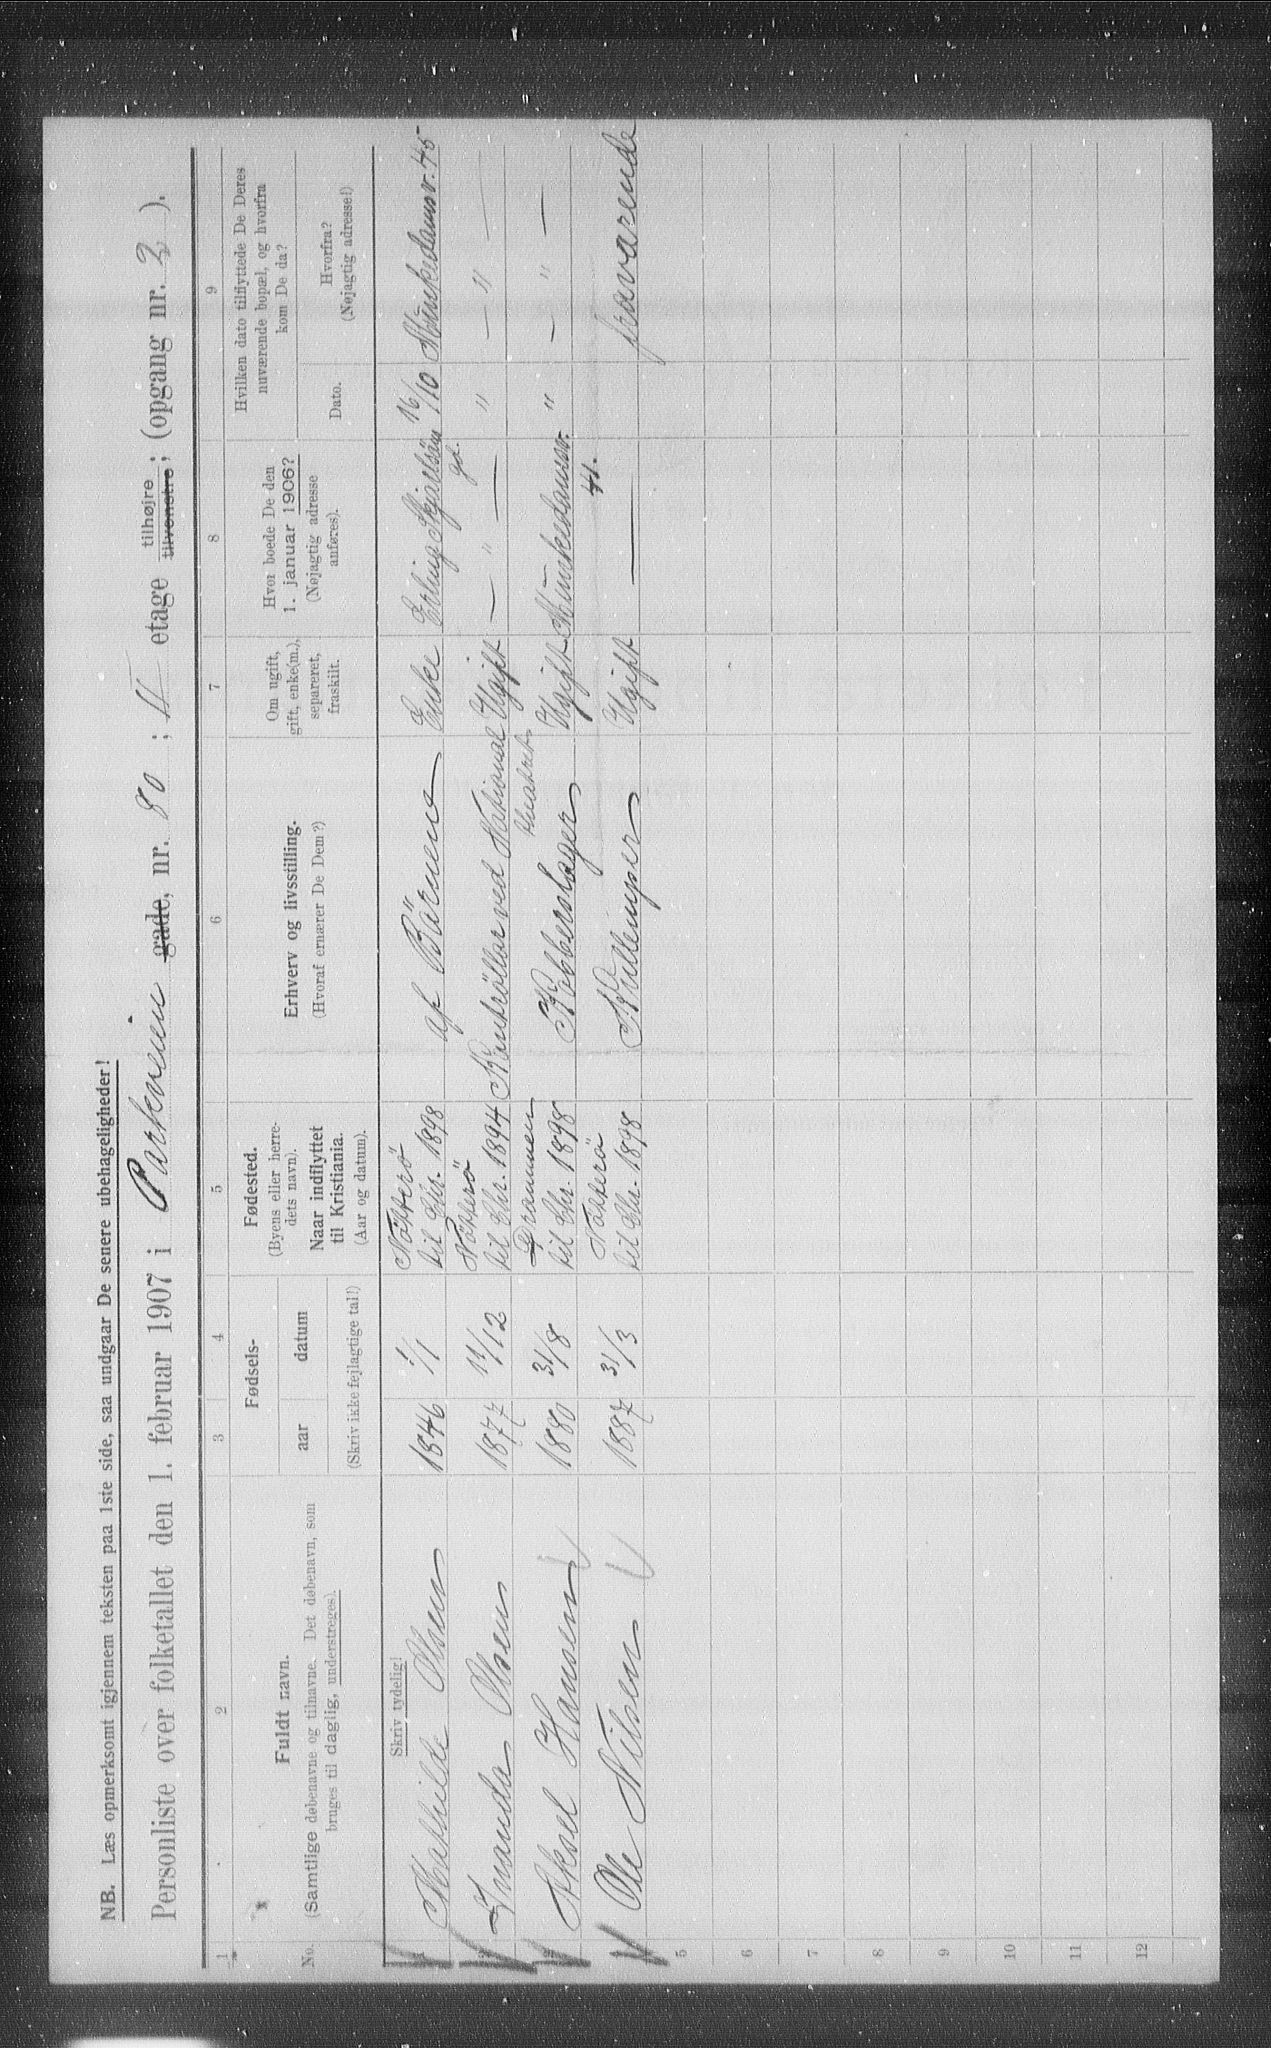 NB. Læs opmerksomt igjennem teksten paa 1ste side, saa undgaar De senere ubehageligheder!
Personliste over folketallet den 1. februar 1907 i Parkveien gade, nr. 80; II etage tilhøjre tilvenstre; (opgang nr. 2).
1 2 3 4 5 6 7 8 9
No.
Fuldt navn.
(Samtlige døbenavne og tilnavne. Det døbenavn, som
bruges til daglig, understreges).
Fødsels-
aar datum
(Skriv ikke fejlagtige tal!)
Fødested.
(Byens eller herre-
dets navn).
Naar indflyttet
til Kristiania.
(Aar og datum).
Erhverv og livsstilling.
(Hvoraf ernærer De Dem?)
Om ugift,
gift, enke(m.),
separeret,
fraskilt.
Hvor boede De den
1. januar 1906?
(Nøjagtig adresse
anføres).
Hvilken dato tilflyttede De Deres
nuværende bopæl, og hvorfra
kom De da?
Dato.
Hvorfra?
(Nøjagtig adresse!)
Skriv tydelig!
1 Mathilde Olsen 1846 1/1 Nötterö til Chr. 1898 af Börnene Enke Erling Skjalssöns gd. 16/10 Munkedamsv. 45
2 Amanda Olsen 1877 11/12 Nötterö til Chr. 1894 Kontröllör ved National theatret Ugift — " — " — " —
3 Aksel Hansen 1880 31/8 Drammen til Chr. 1898 Kobberslager Ugift Munkedamsv. 41. " — " —
4 Ole Nilsen 1887 31/3 Nötterö til Chr. 1898 Ugift — fraværende
5
6
7
8
9
10
11
12